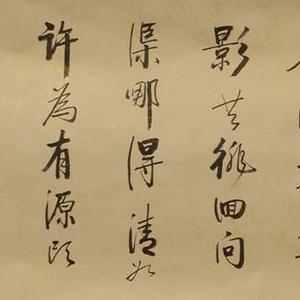 影共徘徊問
渠哪得清如
許為有源頭